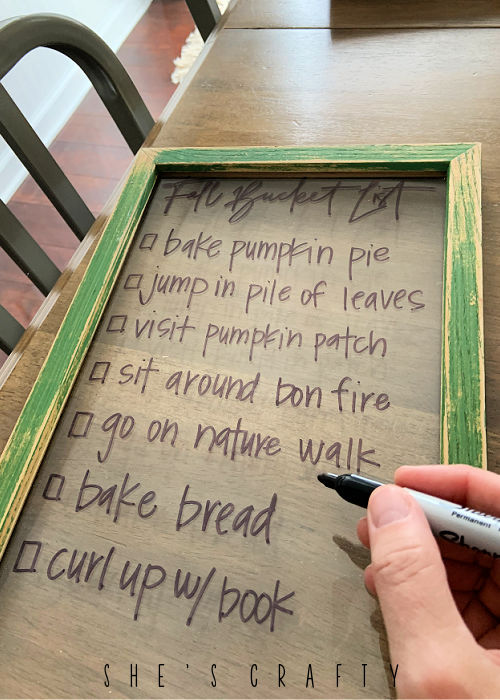 Fall Bucket List
bake pumpkin pie
jump in pile of leaves
visit pumpkin patch
sit around bon fire
go on nature walk
bake bread
curl up w/ book
Permanent
SHE'S CRAFTY